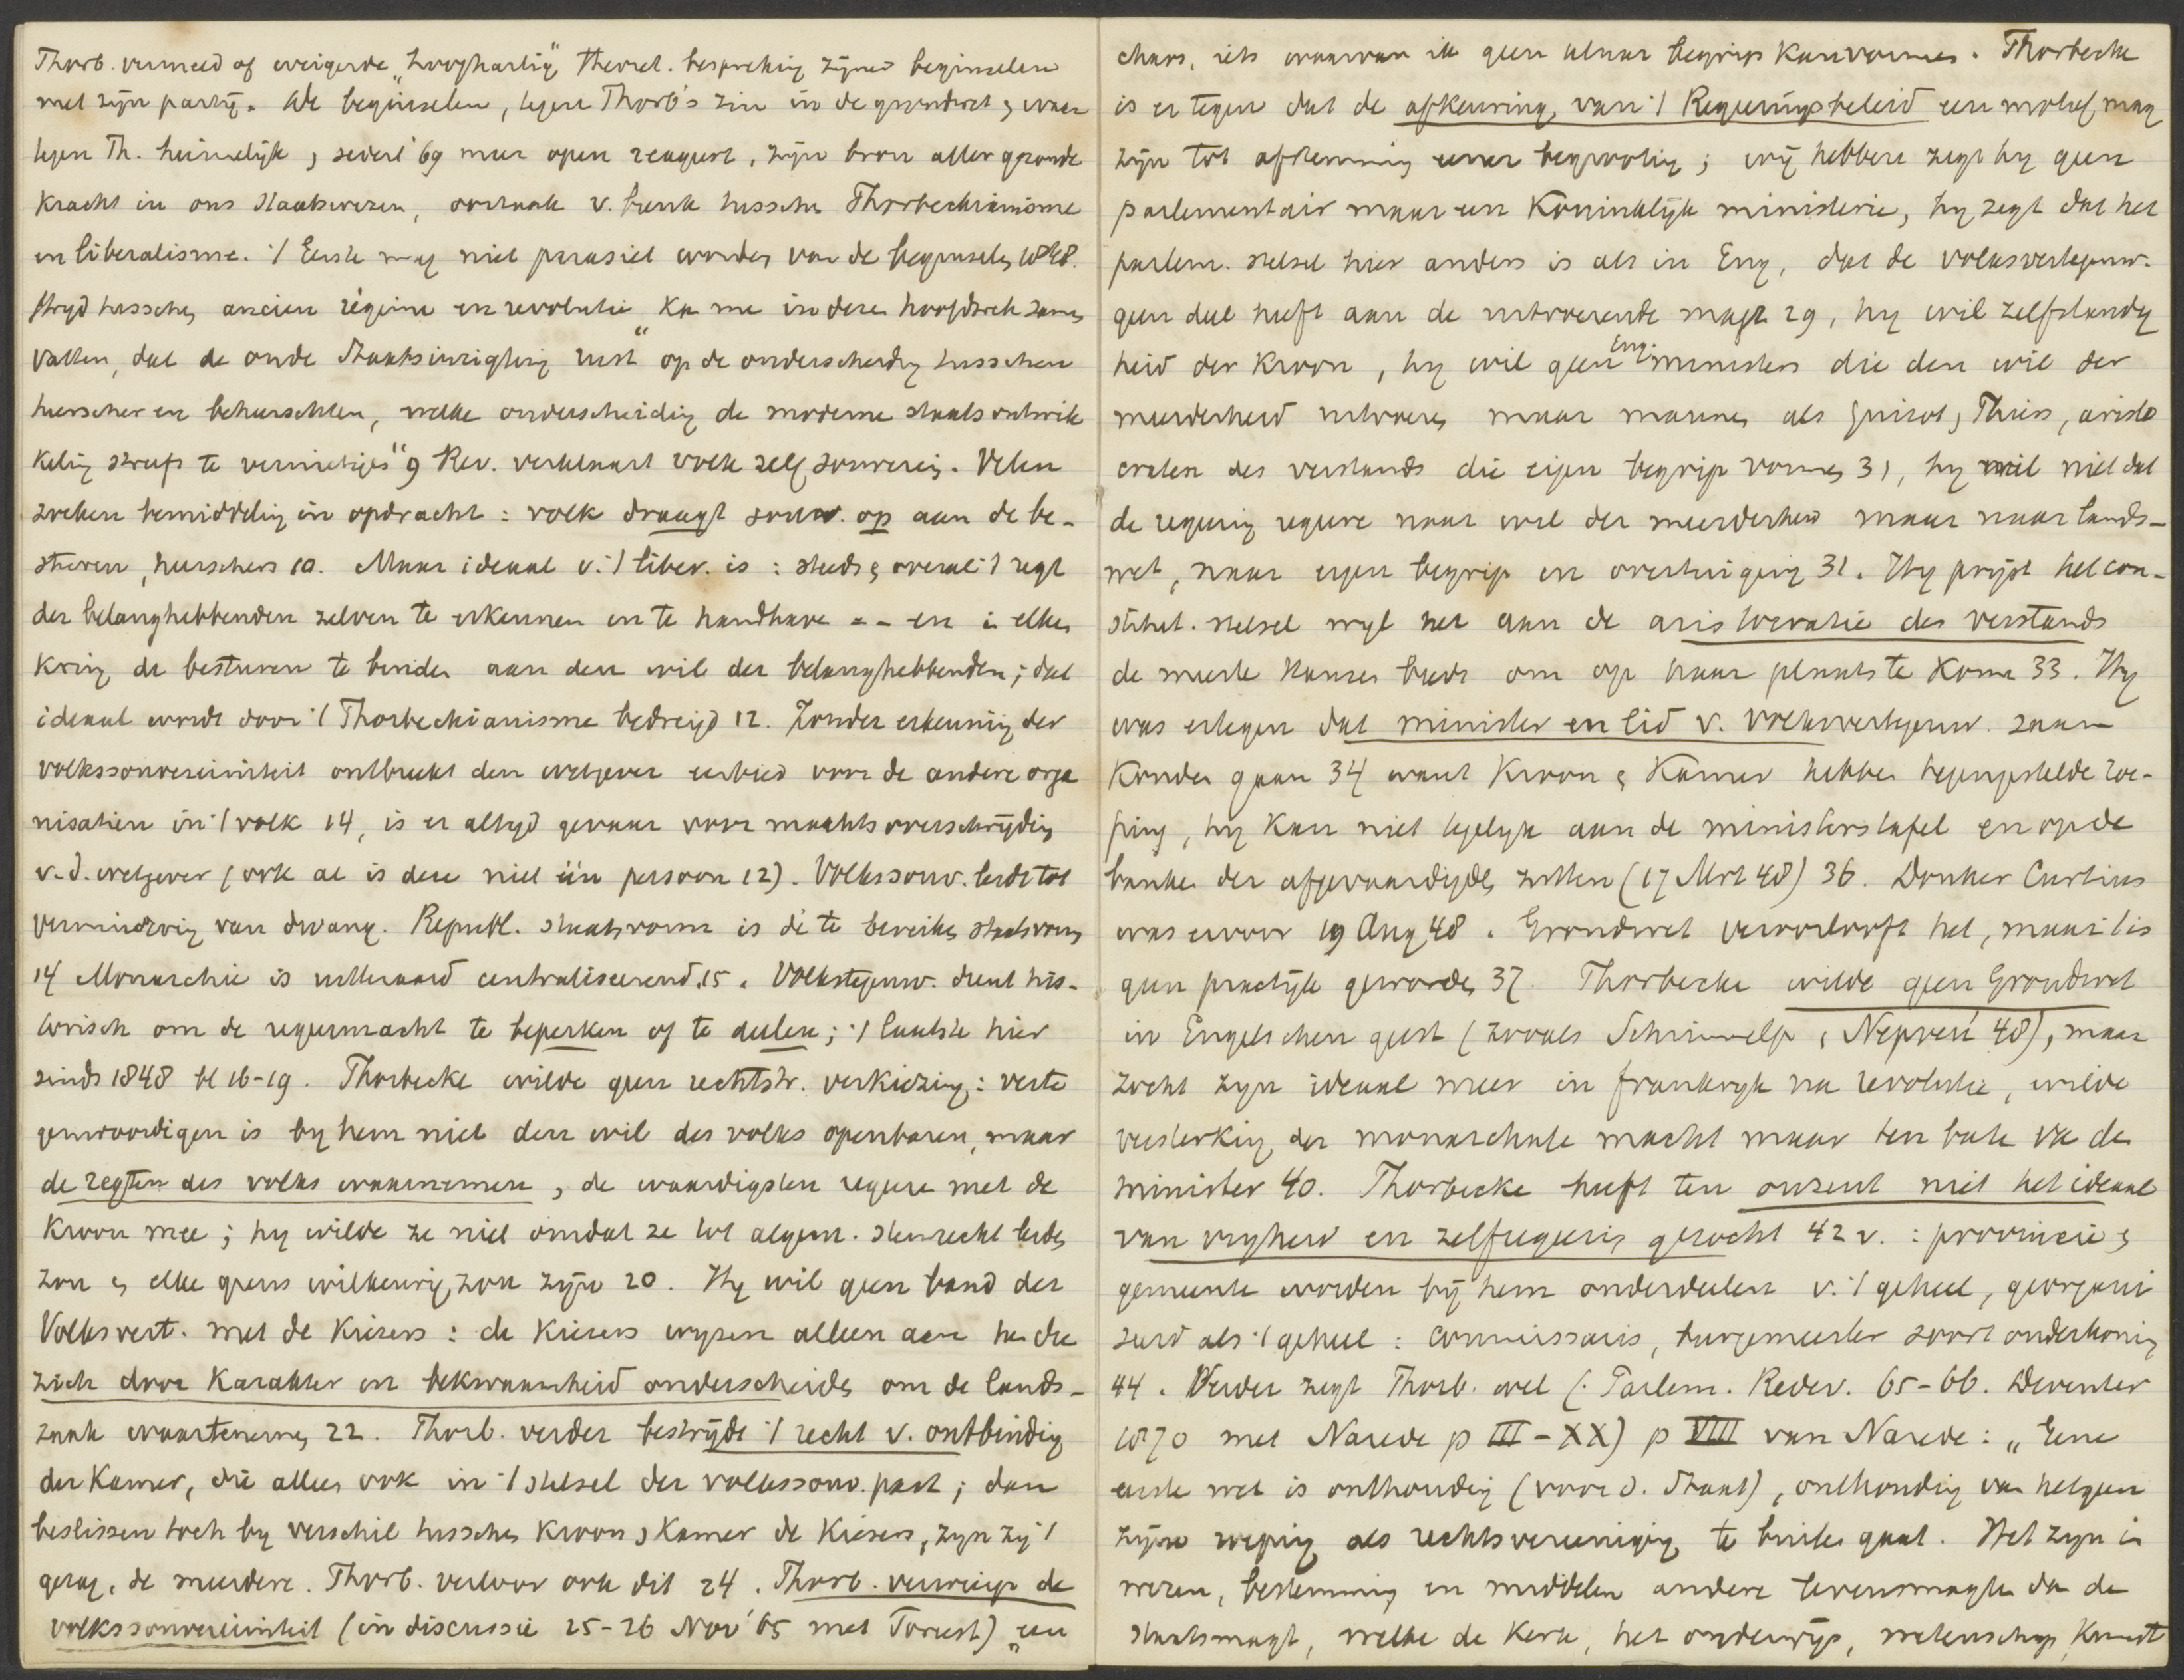 Thorb. vermeed of weigerde „hooghartig" theoret. bespreking zijner beginselen
met zijn partij. De beginselen, tegen Thorb's zin in de grondwet & waar
tegen Th. heimelijk, sedert '69 meer open reageert, zijn bron aller gezonde
kracht in ons Staatswezen, oorzaak v. breuk tusschen Thorbeckianisme
en liberalisme. 't Eerste mag niet parasiet worden van de beginselen 1848.
Strijd tusschen ancien régime en revolutie ka me in deze hoofdtrek samen
vatten, dat de oude Staatsinrigting rust „op de onderscheiding tusschen
heerscher en beheerschten, welke onderscheiding de moderne staatsontwik
keling streeft te vernietigen" 9 Rev. verklaart volk zelf souverein. Velen
zoeken bemiddeling in opdracht: volk draagt souv. op aan de be-
stuurders, heerschers 10. Maar ideaal v. 't liber. is: steeds & overal 't regt
der belanghebbenden zelven te erkennen en te handhave -- en in elken
kring de besturen te binden aan den wil der belanghebbenden; dat
ideaal wordt door 't Thorbeckianisme bedreigd 12. Zonder erkenning der
volkssouvereiniteit ontbreekt den wetgever eerbied voor de andere orga
nisatien in 't volk 14, is er altijd gevaar voor machtsoverschrijding
v. d. wetgever (ook al is deze niet één persoon 12). Volkssouv. leidt tot
vermindering van dwang. Republ. staatsvorm is dé te bereiken staatsvorm
14 Monarchie is uitteraard centraliseerend 15. Volksvertegenw. dient his-
torisch om de regeermacht te beperken of te deelen; 't laatste hier
sinds 1848 bl 16-19. Thorbecke wilde geen rechtstr. verkiezing: verte
genwoordigen is bij hem niet den wil des volks openbaren, maar
de regten des volks waarnemen, de waardigsten regeren met de
Kroon mee; hij wilde ze niet omdat ze tot algem. stemrecht leiden
zou & elke grens willekeurig zou zijn 20. Hij wil geen band der
Volksvert. met de kiezers: de kiezers wijzen alleen aan hen die
zich door karakter en bekwaamheid onderscheiden om de lands-
zaak waartenemen 22. Thorb. verder bestrijdt 't recht v. ontbinding
der Kamer, die alleen ook in 't stelsel der volkssouv. past; dan
beslissen toch bij verschil tusschen Kroon & Kamer de kiezers, zijn zij 't
gezag, de meerdere. Thorb. verloor ook dit 24. Thorb. verwierp de
volkssouvereiniteit (in discussie 25-26 Nov '65 met Forest) „een
chaos, iets waarvan ik geen klaar begrip kan vormen. Thorbecke
is er tegen dat de afkeuring van 't Regeringsbeleid een motief mag
zijn tot afstemming eener begrooting; wij hebben zegt hij geen
parlementair maar een Koninklijk ministerie, hij zegt dat het
parlem. stelsel hier anders is als in Eng, dat de volksvertegenw.
geen deel heeft aan de uitvoerende magt 29, hij wil zelfstandig
heid der Kroon, hij wil geen Eng. ministers die den wil der
meerderheid uitvoeren maar mannen als Guizot, Thiers, aristo
craten des verstands die eigen begrip vormen 31, hij wil niet dat
de regering regere naar wil der meerderheid maar naar lands-
wet, naar eigen begrip en overtuiging 31. Hij prijst het con-
stitut. stelsel wijl het aan de aristocratie des verstands
de meeste kansen biedt om op haar plaats te komen 33. Hij
was ertegen dat minister en lid v. volksvertegenw. saam
konden gaan 34 want Kroon & Kamer hebben tegengestelde roe-
ping, hij kan niet tegelijk aan de ministerstafel en op de
banken der afgevaardigden zitten (17 Mrt 48) 36. Donker Curtius
was ervoor 19 Aug 48. Grondwet veroorlooft het, maar 't is
geen practijk geworden 37. Thorbecke wilde geen Grondwet
in Engelschen geest (zooals Schimmelp, Nepveu 48), maar
zocht zijn ideaal meer in Frankrijk na revolutie, wilde
versterking der monarchale macht maar ten bate va de
minister 40. Thorbecke heeft ten onzent niet het ideaal
van vrijheid en zelfregering gezocht 42 v.: provincie &
gemeente worden bij hem onderdeelen v. 't geheel, georgani
seerd als 't geheel: commissaris, burgemeester soort onderkoning
44. Verder zegt Thorb. wel (. Parlem. Redev. 65-66. Deventer
1870 met Narede p III-XX) p VIII van Narede: „Eene
eerste wet is onthouding (voor d. Staat), onthouding van hetgeen
zijne roeping als rechtsvereeniging te buiten gaat. Het zijn in
wezen, bestemming en middelen andere levensmagten dan de
staatsmagt, welke de Kerk, het onderwijs, wetenschap, Kunst